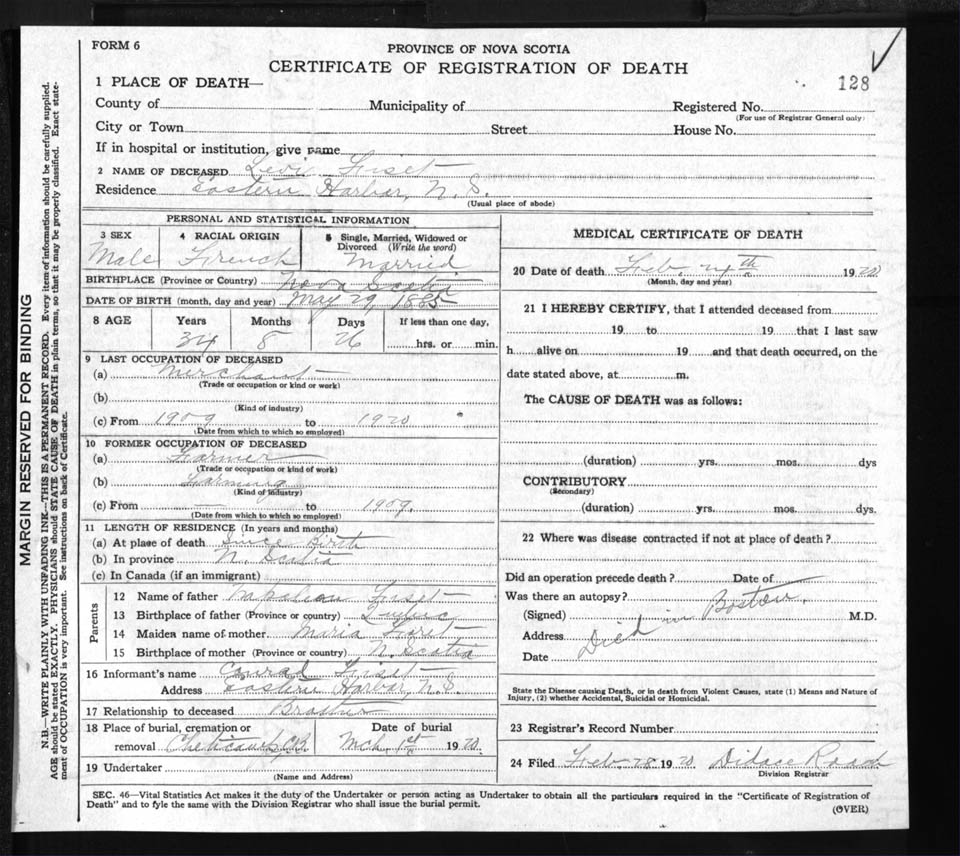 FORM 6
PROVINCE OF NOVA SCOTIA
CERTIFICATE OF REGISTRATION OF DEATH
128
1 PLACE OF DEATH—
County of Municipality of Registered No.
(For use of Registrar General only)
City or Town Street House No.
If in hospital or institution, give name
2 NAME OF DECEASED Levi Fiset
Residence Eastern Harbor, N. S.
(Usual place of abode)
PERSONAL AND STATISTICAL INFORMATION
3 SEX 4 RACIAL ORIGIN 5 Single, Married, Widowed or Divorced (Write the word)
Male French Married
BIRTHPLACE (Province or Country) Nova Scotia
DATE OF BIRTH (month, day and year) May 29, 1885
8 AGE Years Months Days If less than one day,
34 8 26 hrs. or min.
9 LAST OCCUPATION OF DECEASED
(a) Merchant
(Trade or occupation or kind or work)
(b)
(Kind of industry)
(c) From 1909 to 1920
(Date from which to which so employed)
10 FORMER OCCUPATION OF DECEASED
(a) Farmer
(Trade or occupation or kind of work)
(b) Farming
(Kind of industry)
(c) From to 1909.
(Date from which to which so employed)
11 LENGTH OF RESIDENCE (In years and months)
(a) At place of death Since Birth
(b) In province N. Scotia
(c) In Canada (if an immigrant)
Parents
12 Name of father Napolean Fiset
13 Birthplace of father (Province or country) Quebec
14 Maiden name of mother Maria
15 Birthplace of mother (Province or country) N. Scotia
16 Informant's name Conrad Fiset
Address Eastern Harbor, N. S.
17 Relationship to deceased Brother
18 Place of burial, cremation or Date of burial
removal Cheticamp, C.B. Mch. 1st 1920
19 Undertaker
(Name and Address)
MEDICAL CERTIFICATE OF DEATH
20 Date of death Feb. 24th 1920
(Month, day and year)
21 I HEREBY CERTIFY, that I attended deceased from
19 to 19 that I last saw
h alive on 19 and that death occurred, on the
date stated above, at m.
The CAUSE OF DEATH was as follows:
(duration) yrs. mos. dys
CONTRIBUTORY
(Secondary)
(duration) yrs. mos. dys.
22 Where was disease contracted if not at place of death?
Did an operation precede death? Date of
Was there an autopsy?
(Signed) M.D.
Address
Date
Died in Boston.
State the Disease causing Death, or in death from Violent Causes, state (1) Means and Nature of
Injury, (2) whether Accidental, Suicidal or Homicidal.
23 Registrar's Record Number
24 Filed Feb. 28 1920 Didace
Division Registrar
SEC. 46—Vital Statistics Act makes it the duty of the Undertaker or person acting as Undertaker to obtain all the particulars required in the "Certificate of Registration of
Death" and to fyle the same with the Division Registrar who shall issue the burial permit.
(OVER)
MARGIN RESERVED FOR BINDING
N.B.—WRITE PLAINLY WITH UNFADING INK—THIS IS A PERMANENT RECORD. Every item of information should be carefully supplied.
AGE should be stated EXACTLY. PHYSICIANS should STATE CAUSE OF DEATH in plain terms, so that it may be properly classified. Exact state-
ment of OCCUPATION is very important. See instructions on back of Certificate.